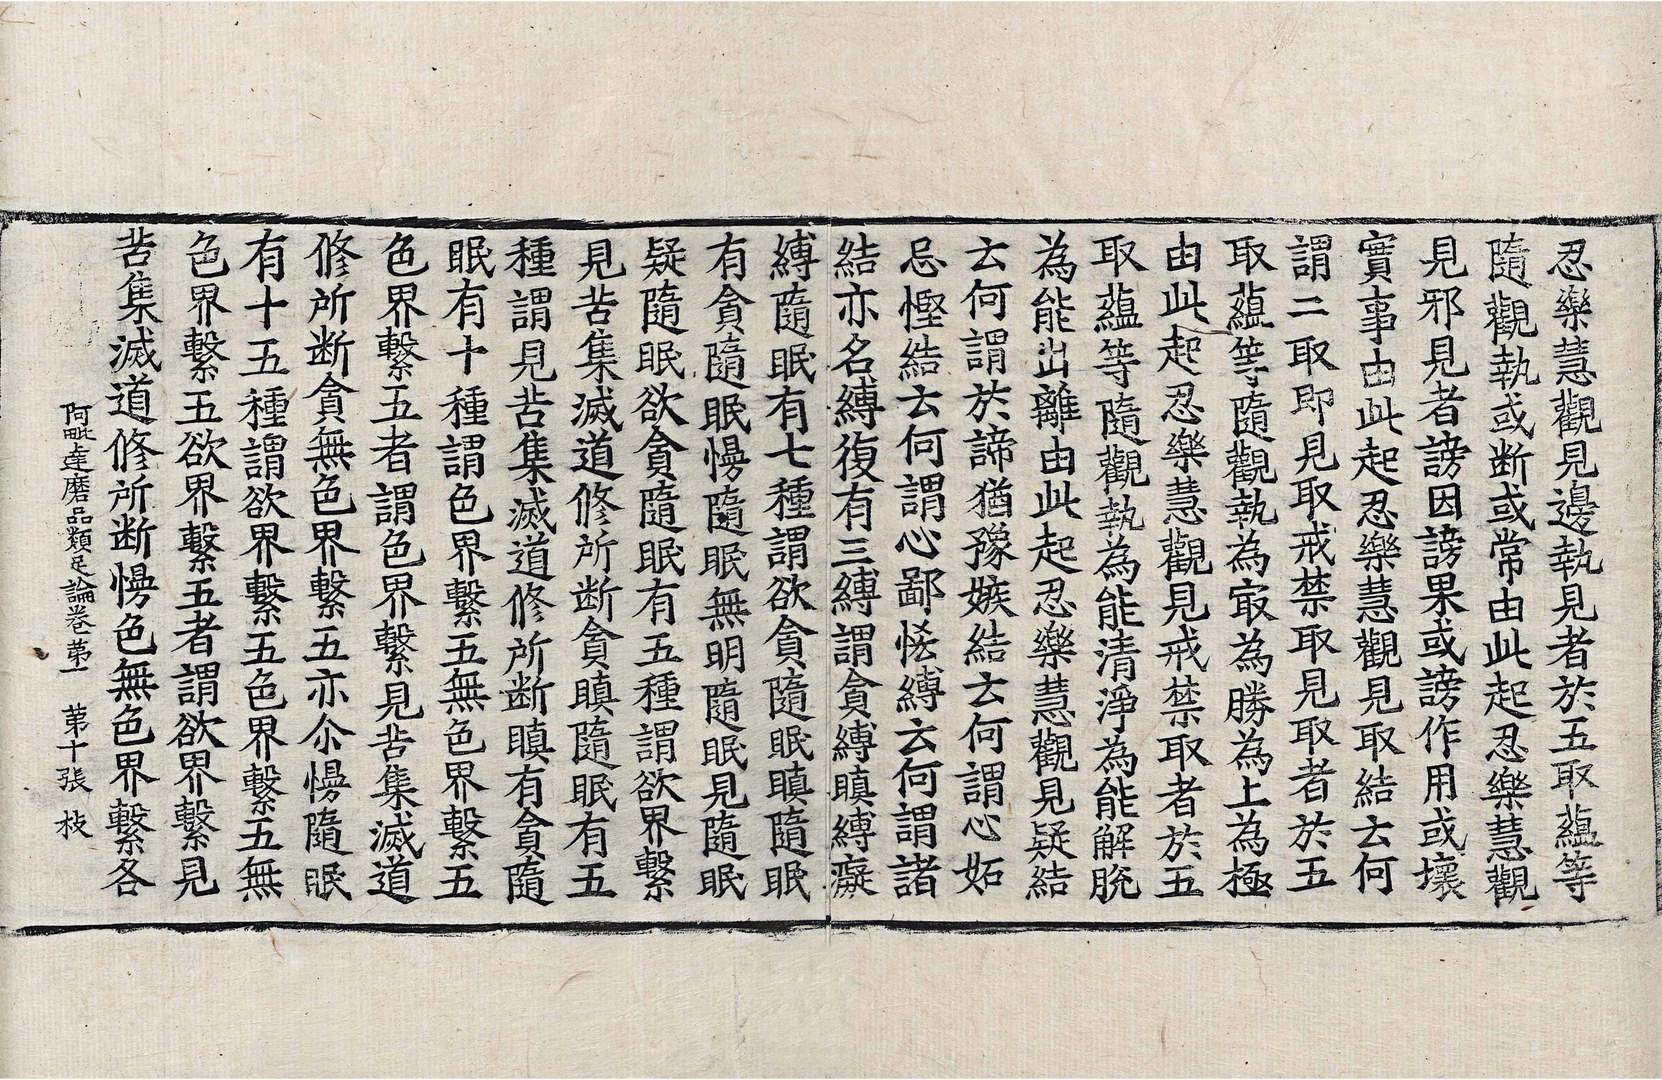 忍樂慧觀見邊執見者於五取蘊等
隨觀執或断或常由此起忍樂慧觀
見邪見者謗因謗果或謗作用或壞
實事由此起忍樂慧觀見取結云何
謂二取即見取戒禁取見取者於五
取蘊等隨觀執為㝡為勝為上為極
由此起忍樂慧觀見戒禁取者於五
取蘊等隨觀執為能清淨為能解脫
為能出離由此起忍樂慧觀見疑結
云何謂於諦猶豫嫉結云何謂心妬
忌慳結云何謂心鄙恡縛云何謂諸
結亦名縛復有三縛謂貪縛瞋縛癡
縛隨眠有七種謂欲貪隨眠瞋隨眠
有貪隨眠慢隨眠無明隨眠見隨眠
疑隨眠欲貪隨眠有五種謂欲界繫
見苦集滅道修所断貪瞋隨眠有五
種謂見苦集滅道修所断瞋有貪隨
眠有十種謂色界繫五無色界繫五
色界繫五者謂色界繫見苦集滅道
修所断貪無色界繫五亦尒慢隨眠
有十五種謂欲界繫五色界繫五無
色界繫五欲界繫五者謂欲界繫見
苦集滅道修所断慢色無色界繫各
阿毗達磨品類足論卷第一 第十張 枝